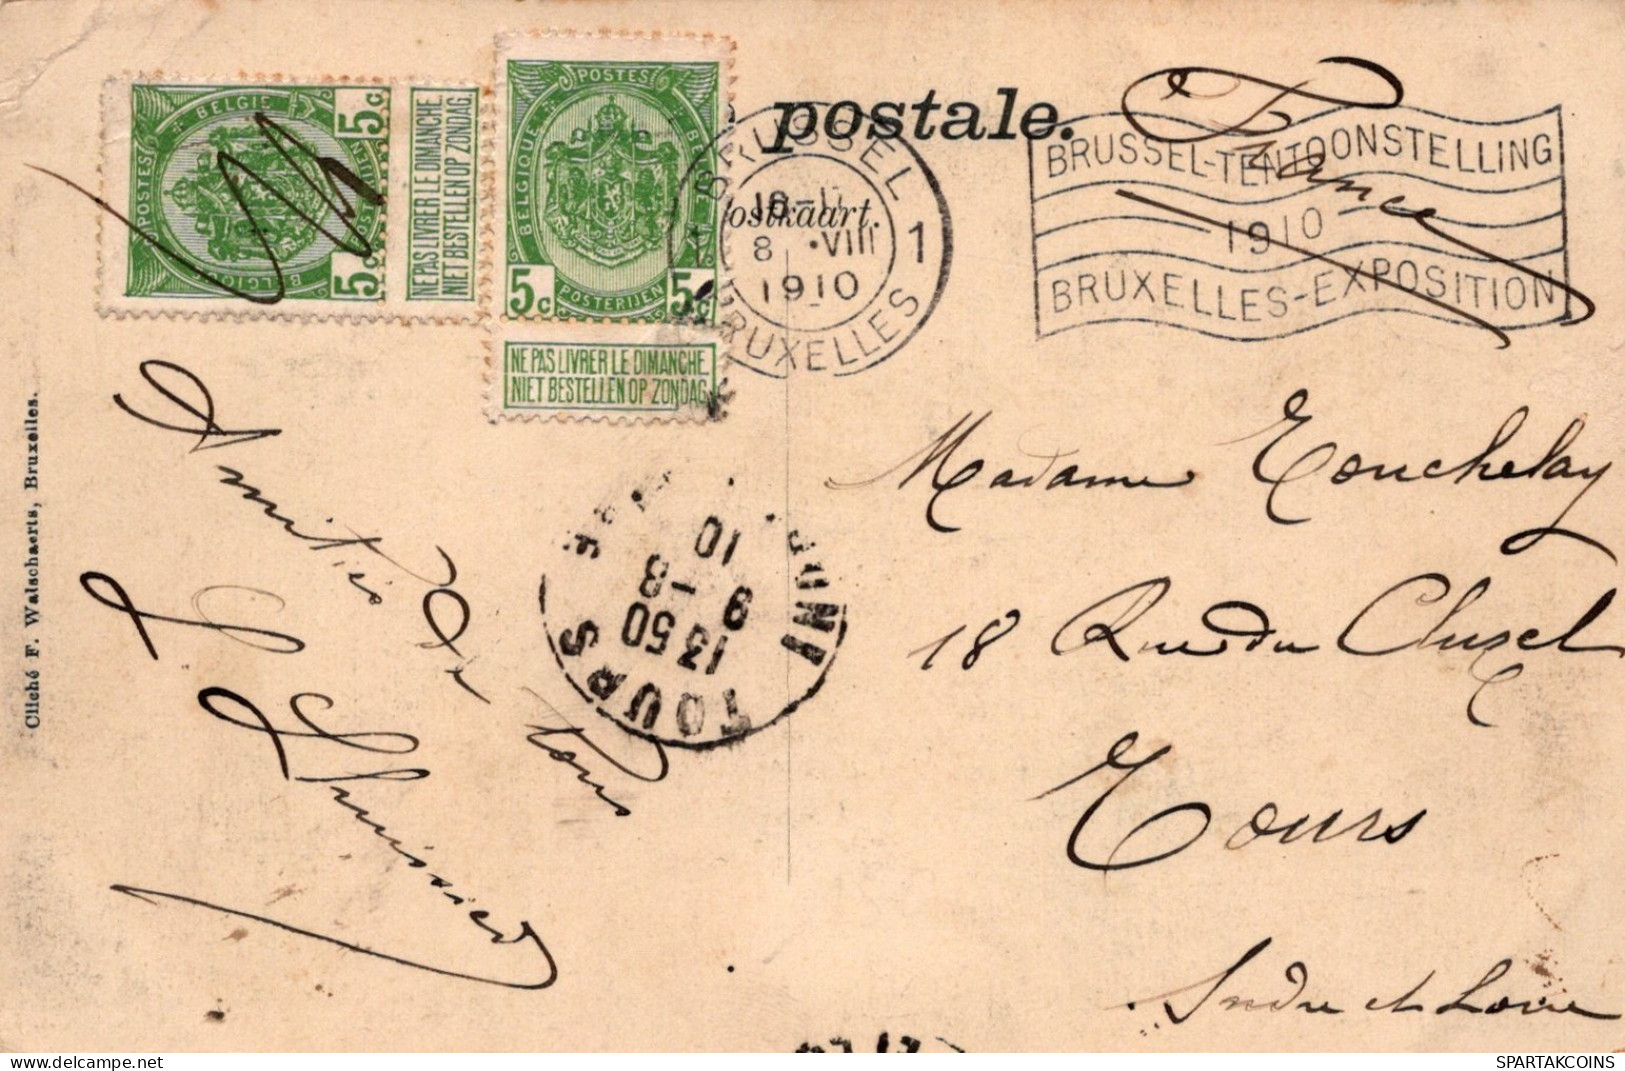 postale.
Postkaart.
France
BELGIE
POSTES
BELGIQUE
5c 5c
NE PAS LIVRER LE DIMANCHE.
NIET BESTELLEN OP ZONDAG.
POSTES
BELGIQUE
POSTERIJEN
5c 5c
NE PAS LIVRER LE DIMANCHE.
NIET BESTELLEN OP ZONDAG.
BRUSSEL
8 VIII
1910
1 1
BRUXELLES
BRUSSEL-TENTOONSTELLING
1910
BRUXELLES-EXPOSITION
Madame Touchelay
18 Rue du Cluzel
Tours
Indre et Loire
Amitiés
à tous
TOURS
INDRE
13 50
9 -8
10
Cliché F. Walschaerts, Bruxelles.
SPARTAKCOINS